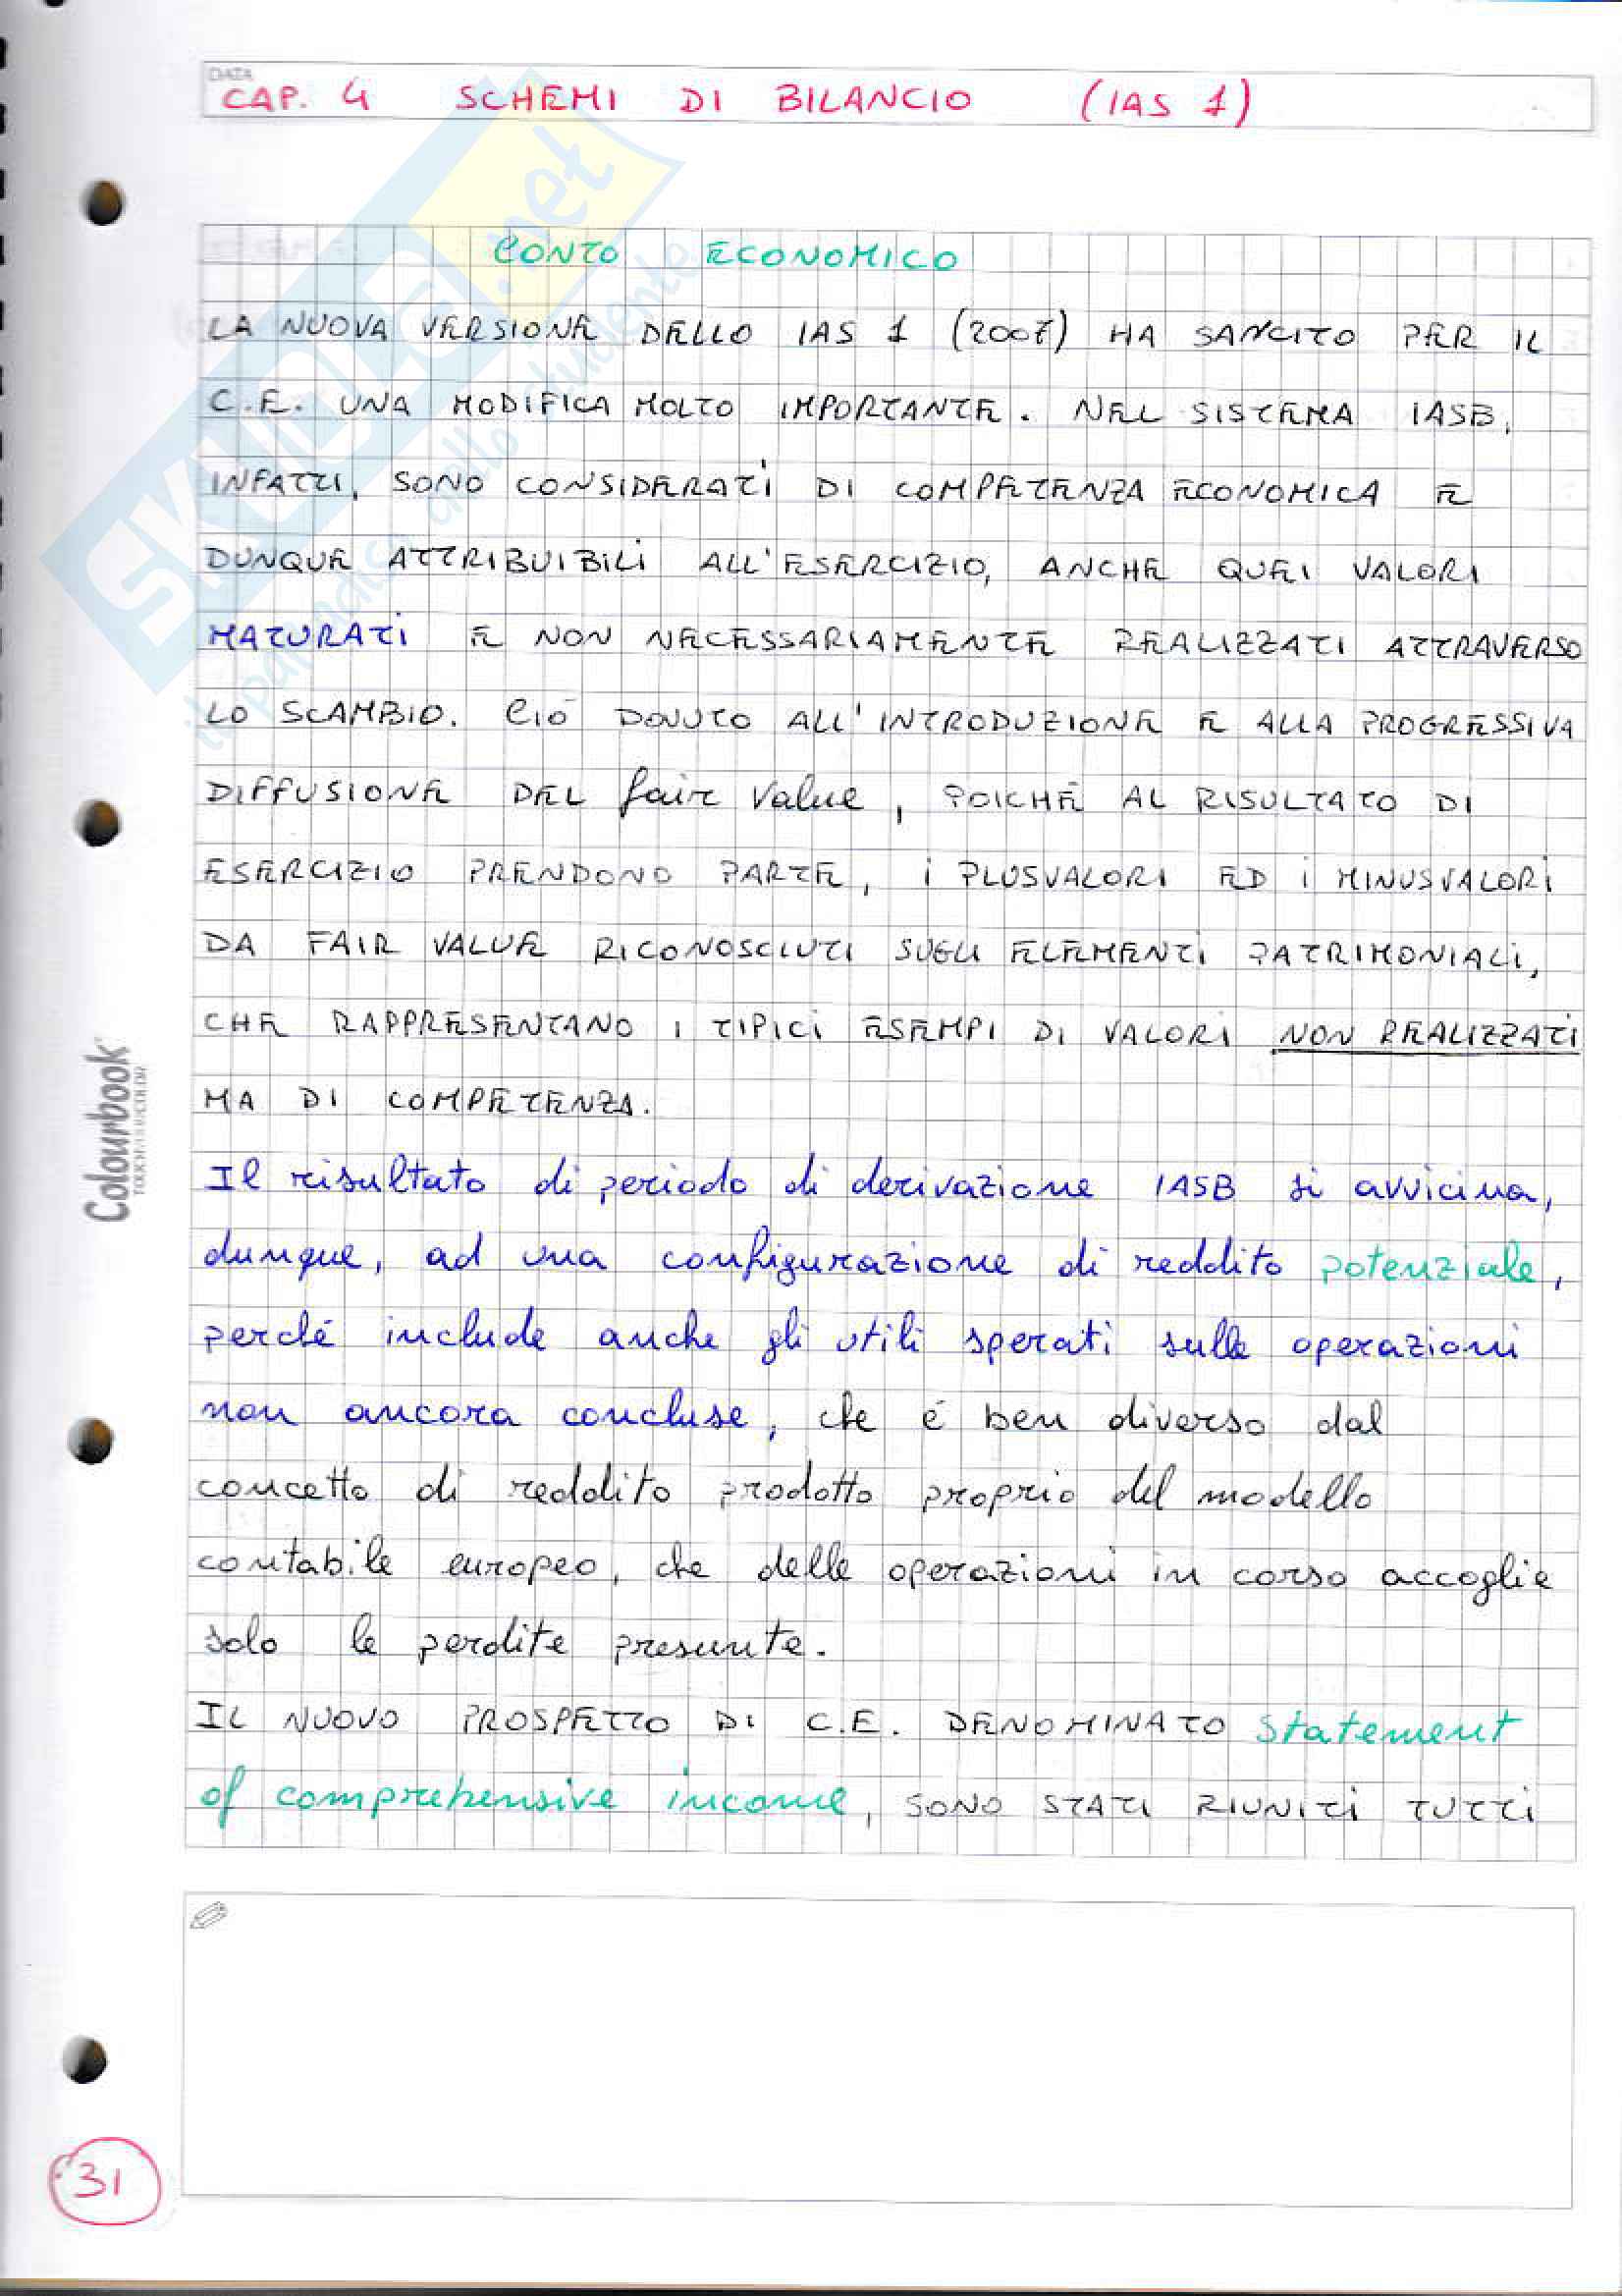 DATA
CAP. 4 SCHEMI DI BILANCIO (IAS 1)
CONTO ECONOMICO
LA NUOVA VERSIONE DELLO IAS 1 (2007) HA SANCITO PER IL
C.E. UNA MODIFICA MOLTO IMPORTANTE. NEL SISTEMA IASB,
INFATTI, SONO CONSIDERATI DI COMPETENZA ECONOMICA E
DUNQUE ATTRIBUIBILI ALL'ESERCIZIO, ANCHE QUEI VALORI
MATURATI E NON NECESSARIAMENTE REALIZZATI ATTRAVERSO
LO SCAMBIO. CIÒ DOVUTO ALL'INTRODUZIONE E ALLA PROGRESSIVA
DIFFUSIONE DEL fair value, POICHÉ AL RISULTATO DI
ESERCIZIO PRENDONO PARTE, I PLUSVALORI ED I MINUSVALORI
DA FAIR VALUE RICONOSCIUTI SUGLI ELEMENTI PATRIMONIALI,
CHE RAPPRESENTANO I TIPICI ESEMPI DI VALORI NON REALIZZATI
MA DI COMPETENZA.
Il risultato di periodo di derivazione IASB si avvicina,
dunque, ad una configurazione di reddito potenziale,
perché include anche gli utili sperati sulle operazioni
non ancora concluse, che è ben diverso dal
concetto di reddito prodotto proprio del modello
contabile europeo, che delle operazioni in corso accoglie
solo le perdite presunte.
IL NUOVO PROSPETTO DI C.E. DENOMINATO statement
of comprehensive income, SONO STATI RIUNITI TUTTI
31
Colourbook
SKUOLA.net
il paradiso dello studente